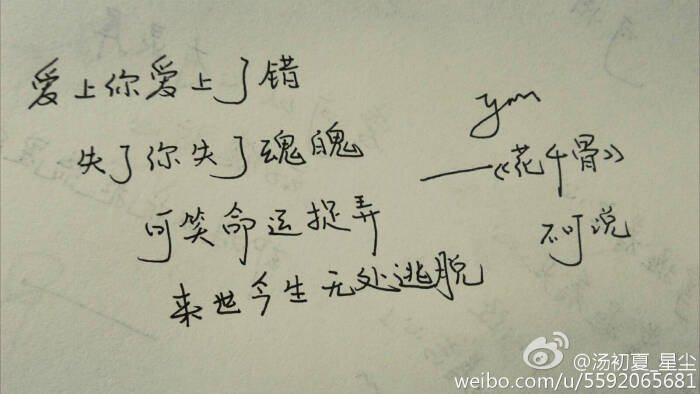 爱上你爱上了错
失了你失了魂魄
可笑命运捉弄
来世今生无处逃脱
——《花千骨》
不可说
@汤初夏_星尘
weibo.com/u/5592065681